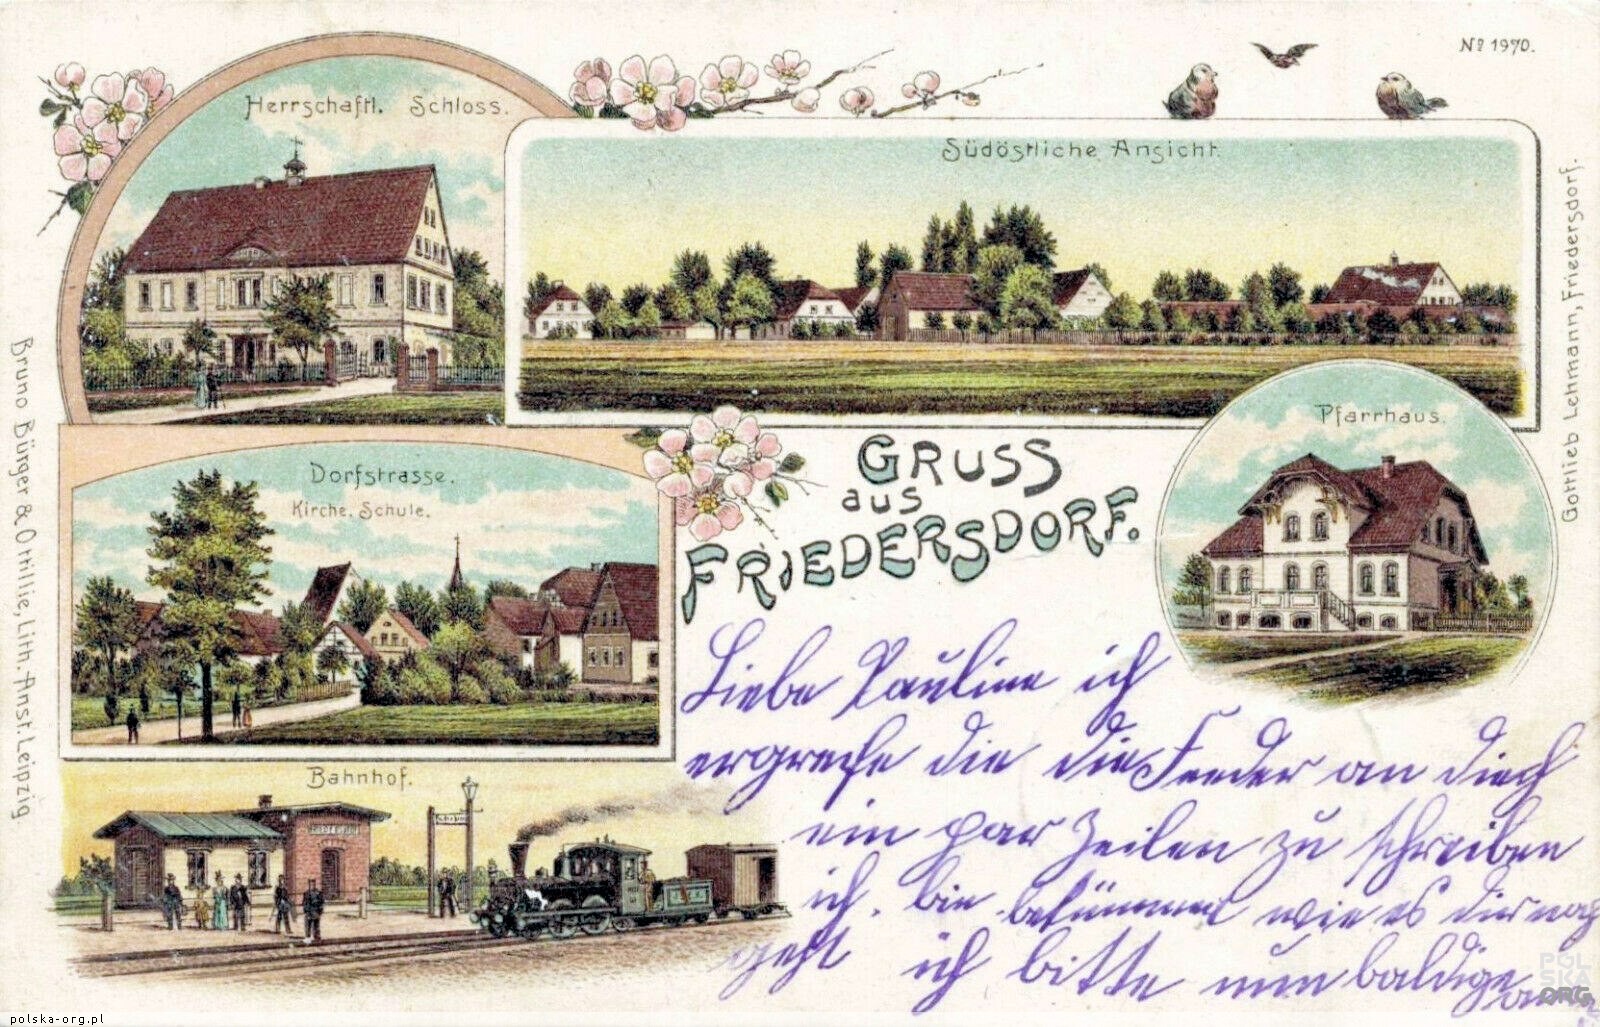 Nº 1970.
Herrschaftl. Schloss.
Südöstliche Ansicht.
Gottlieb Lehmann, Friedersdorf.
Pfarrhaus.
Dorfstrasse.
Kirche. Schule.
GRUSS
aus
FRIEDERSDORF.
Bruno Bürger & Ottilie, Lith. Anst. Leipzig
Bahnhof.
Liebe Pauline ich
ergreife die die Feeder an diech
ein par Zeilen zu schreiben
ich bin bekümmert wie es dier noch
geht ich bitte um baldige
polska-org.pl
POLSKA.ORG